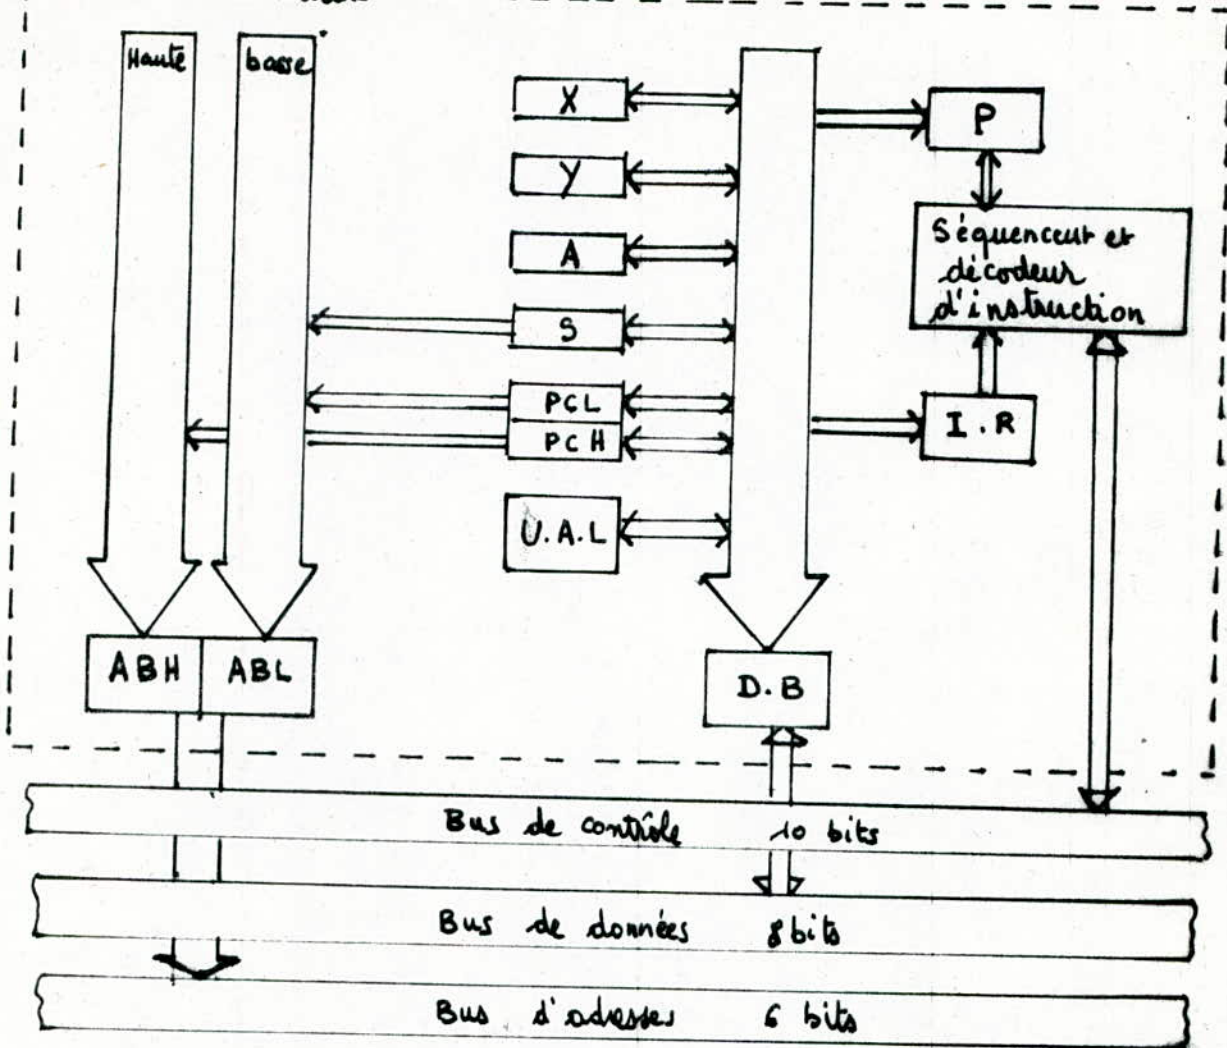 Haute
basse
X
Y
A
S
PCL
PCH
U.A.L
P
Séquenceur et
décodeur
d'instruction
I.R
ABH
ABL
D.B
Bus de contrôle 10 bits
Bus de données 8 bits
Bus d'adresses 6 bits